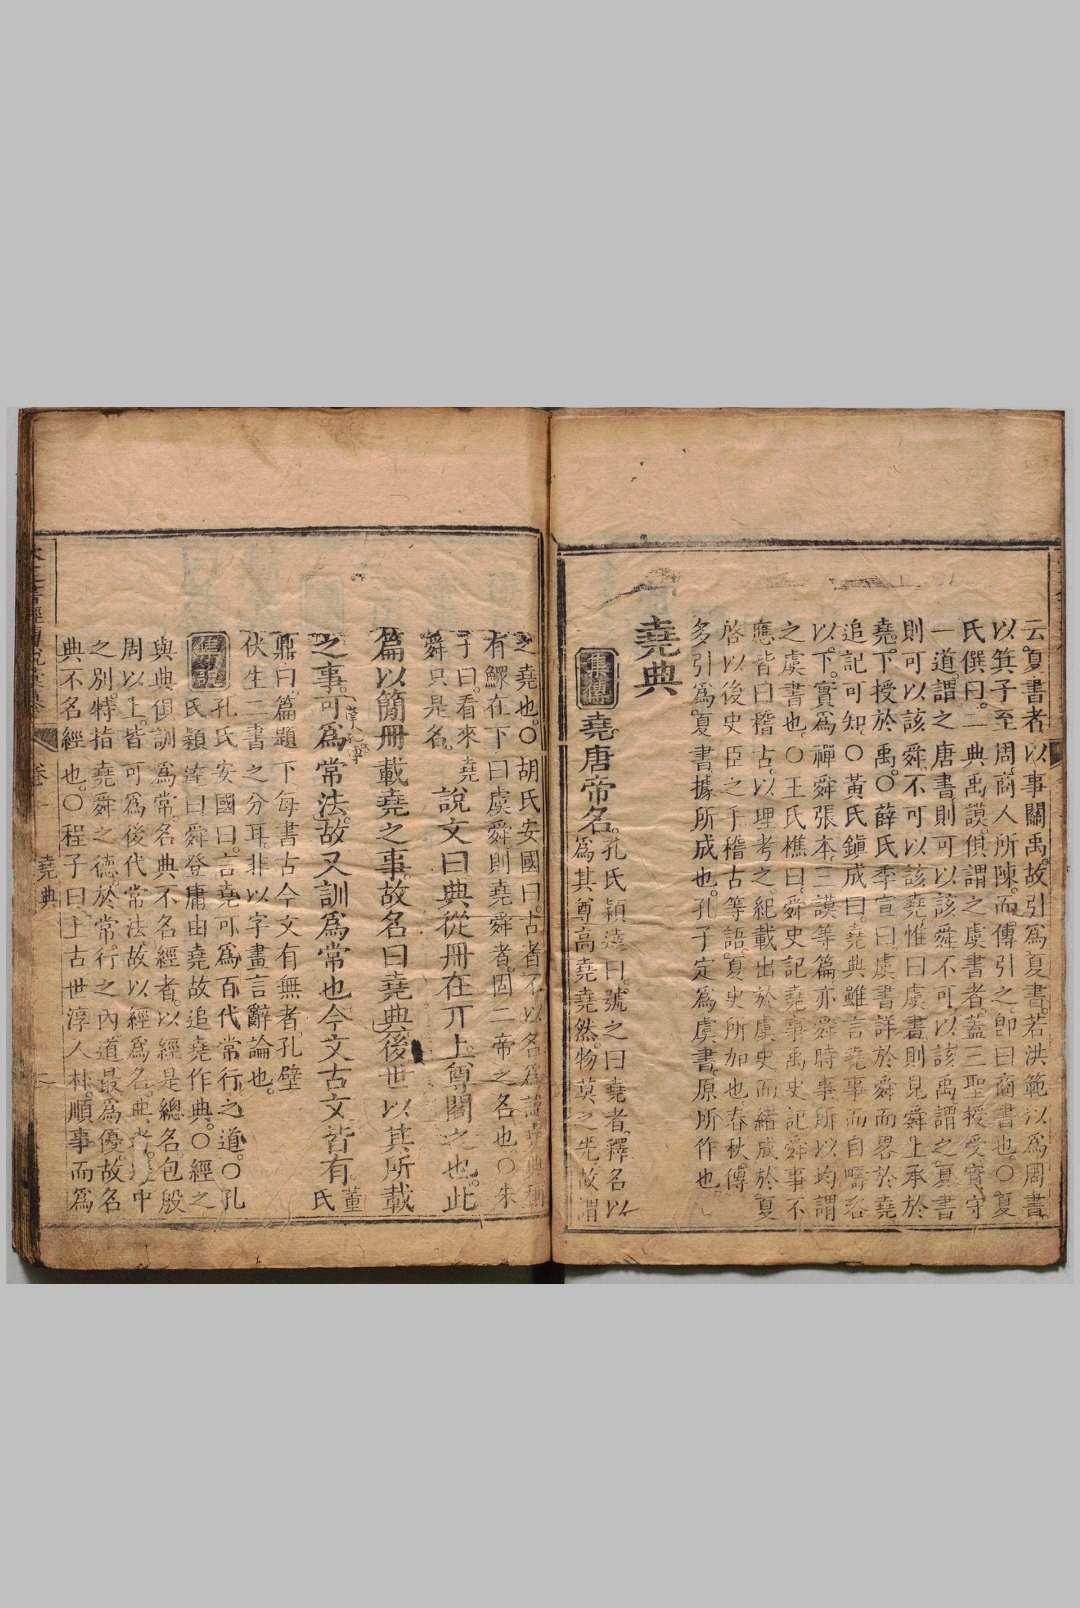 云夏書者以事關禹故引爲夏書若洪範以爲周書
以箕子至周商人所陳而傳引之卽曰商書也〇夏
氏僎曰二典禹謨俱謂之虞書者蓋三聖授受實守
一道謂之唐書則可以該舜不可以該禹謂之夏書
則可以該舜不可以該堯惟曰虞書則見舜上承於
堯下授於禹〇薛氏季宣曰虞書詳於舜而畧於堯
追記可知〇黃氏鎭成曰堯典雖言堯事而自疇咨
以下實爲禪舜張本三謨等篇亦舜時事所以均謂
之虞書也〇王氏樵曰舜史記堯事禹史記舜事不
應皆曰稽古以理考之紀載出於虞史而緒成於夏
啓以後史臣之手稽古等語夏史所加也春秋傳
多引爲夏書據所成也孔子定爲虞書原所作也
堯典
集傳 堯唐帝名孔氏穎達曰號之曰堯者釋名以
爲其尊高堯堯然物莫之先故謂
之堯也〇胡氏安國曰古者不以名爲諱
有鰥在下曰虞舜則堯舜者固二帝之名也〇朱
子曰看來堯
舜只是名
說文曰典從冊在丌上尊閣之也此
篇以簡冊載堯之事故名曰堯典後世以其所載
之事可爲常法故又訓爲常也今文古文皆有董氏
鼎曰篇題下每書古今文有無者孔壁
伏生二書之分耳非以字畫言辭論也
集說 孔氏安國曰言堯可爲百代常行之道〇孔
氏穎達曰舜登庸由堯故追堯作典〇經之
與典俱訓爲常名典不名經者以經是總名包殷
周以上皆可爲後代常法故以經爲名典者經中
之別特指堯舜之德於常行之內道最爲優故名
典不名經也〇程子曰上古世淳人朴順事而爲
堯典